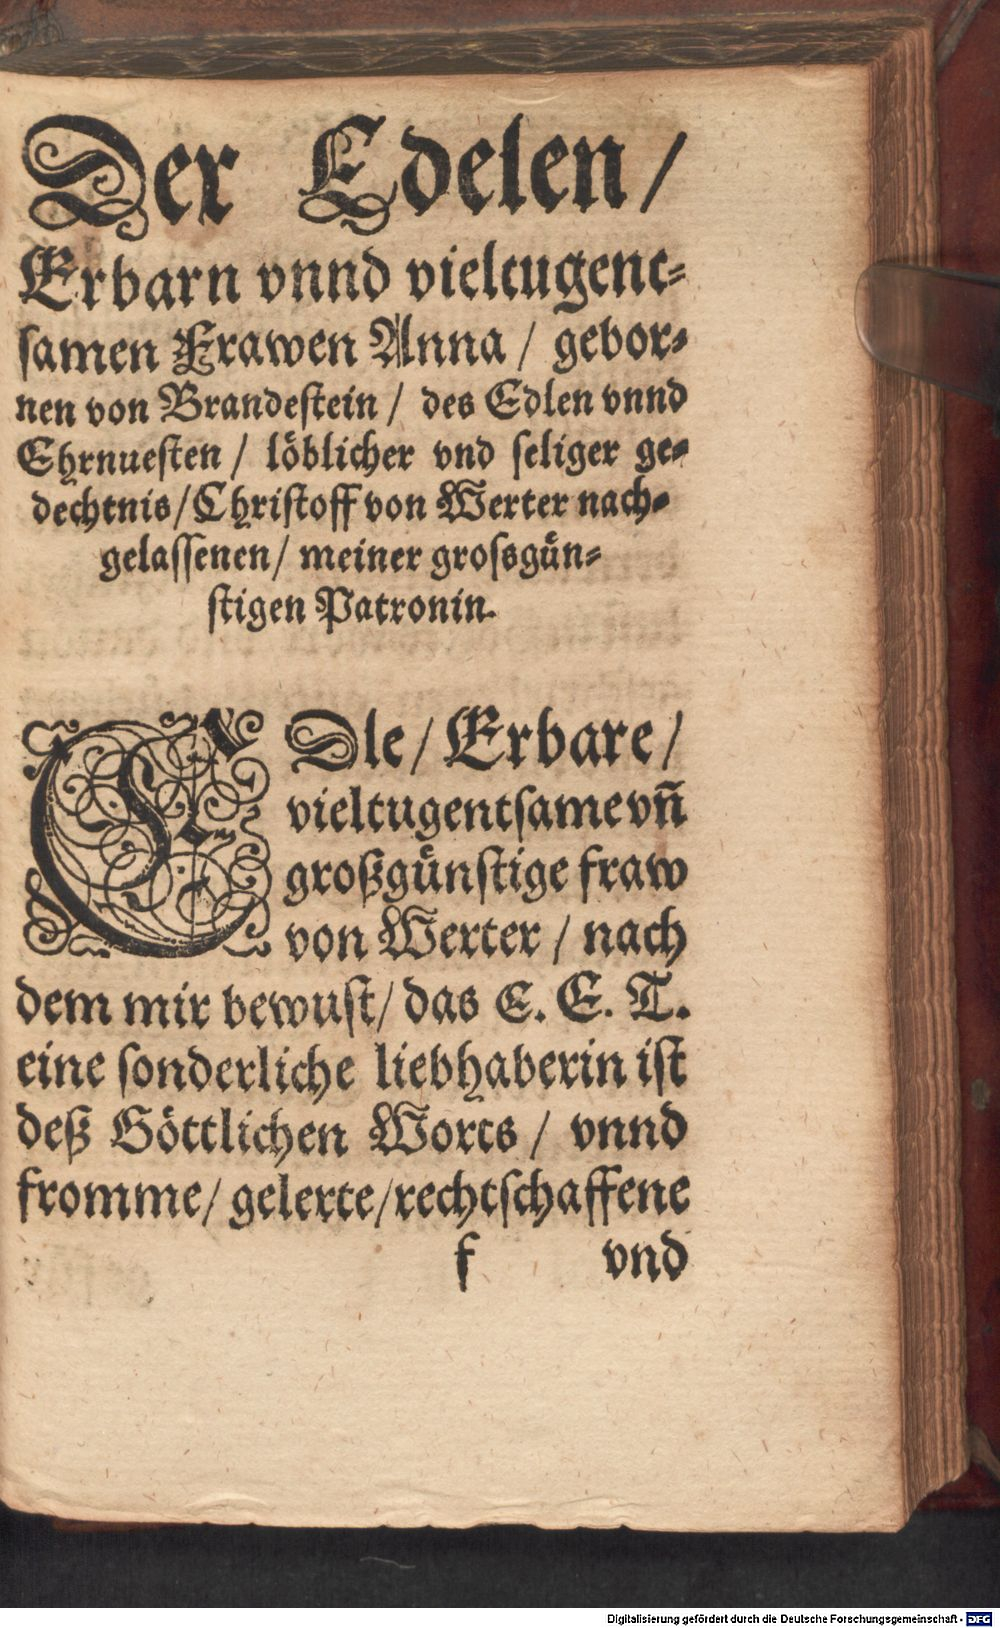 Der Edelen /
Erbarn vnnd vieltugent⸗
ſamen Frawen Anna / gebor⸗
nen von Brandeſtein / des Edlen vnnd
Ehrnueſten / löblicher vnd ſeliger ge⸗
dechtnis / Chriſtoff von Werter nach⸗
gelaſſenen / meiner groſsgün⸗
ſtigen Patronin.
EDle / Erbare /
vieltugentſame vn̄
großgünſtige fraw
von Werter / nach
dem mir bewuſt / das E. E. T.
eine ſonderliche liebhaberin iſt
deß Göttlichen Worts / vnnd
fromme / gelerte / rechtſchaffene
f vnd
Digitalisierung gefördert durch die Deutsche Forschungsgemeinschaft - DFG